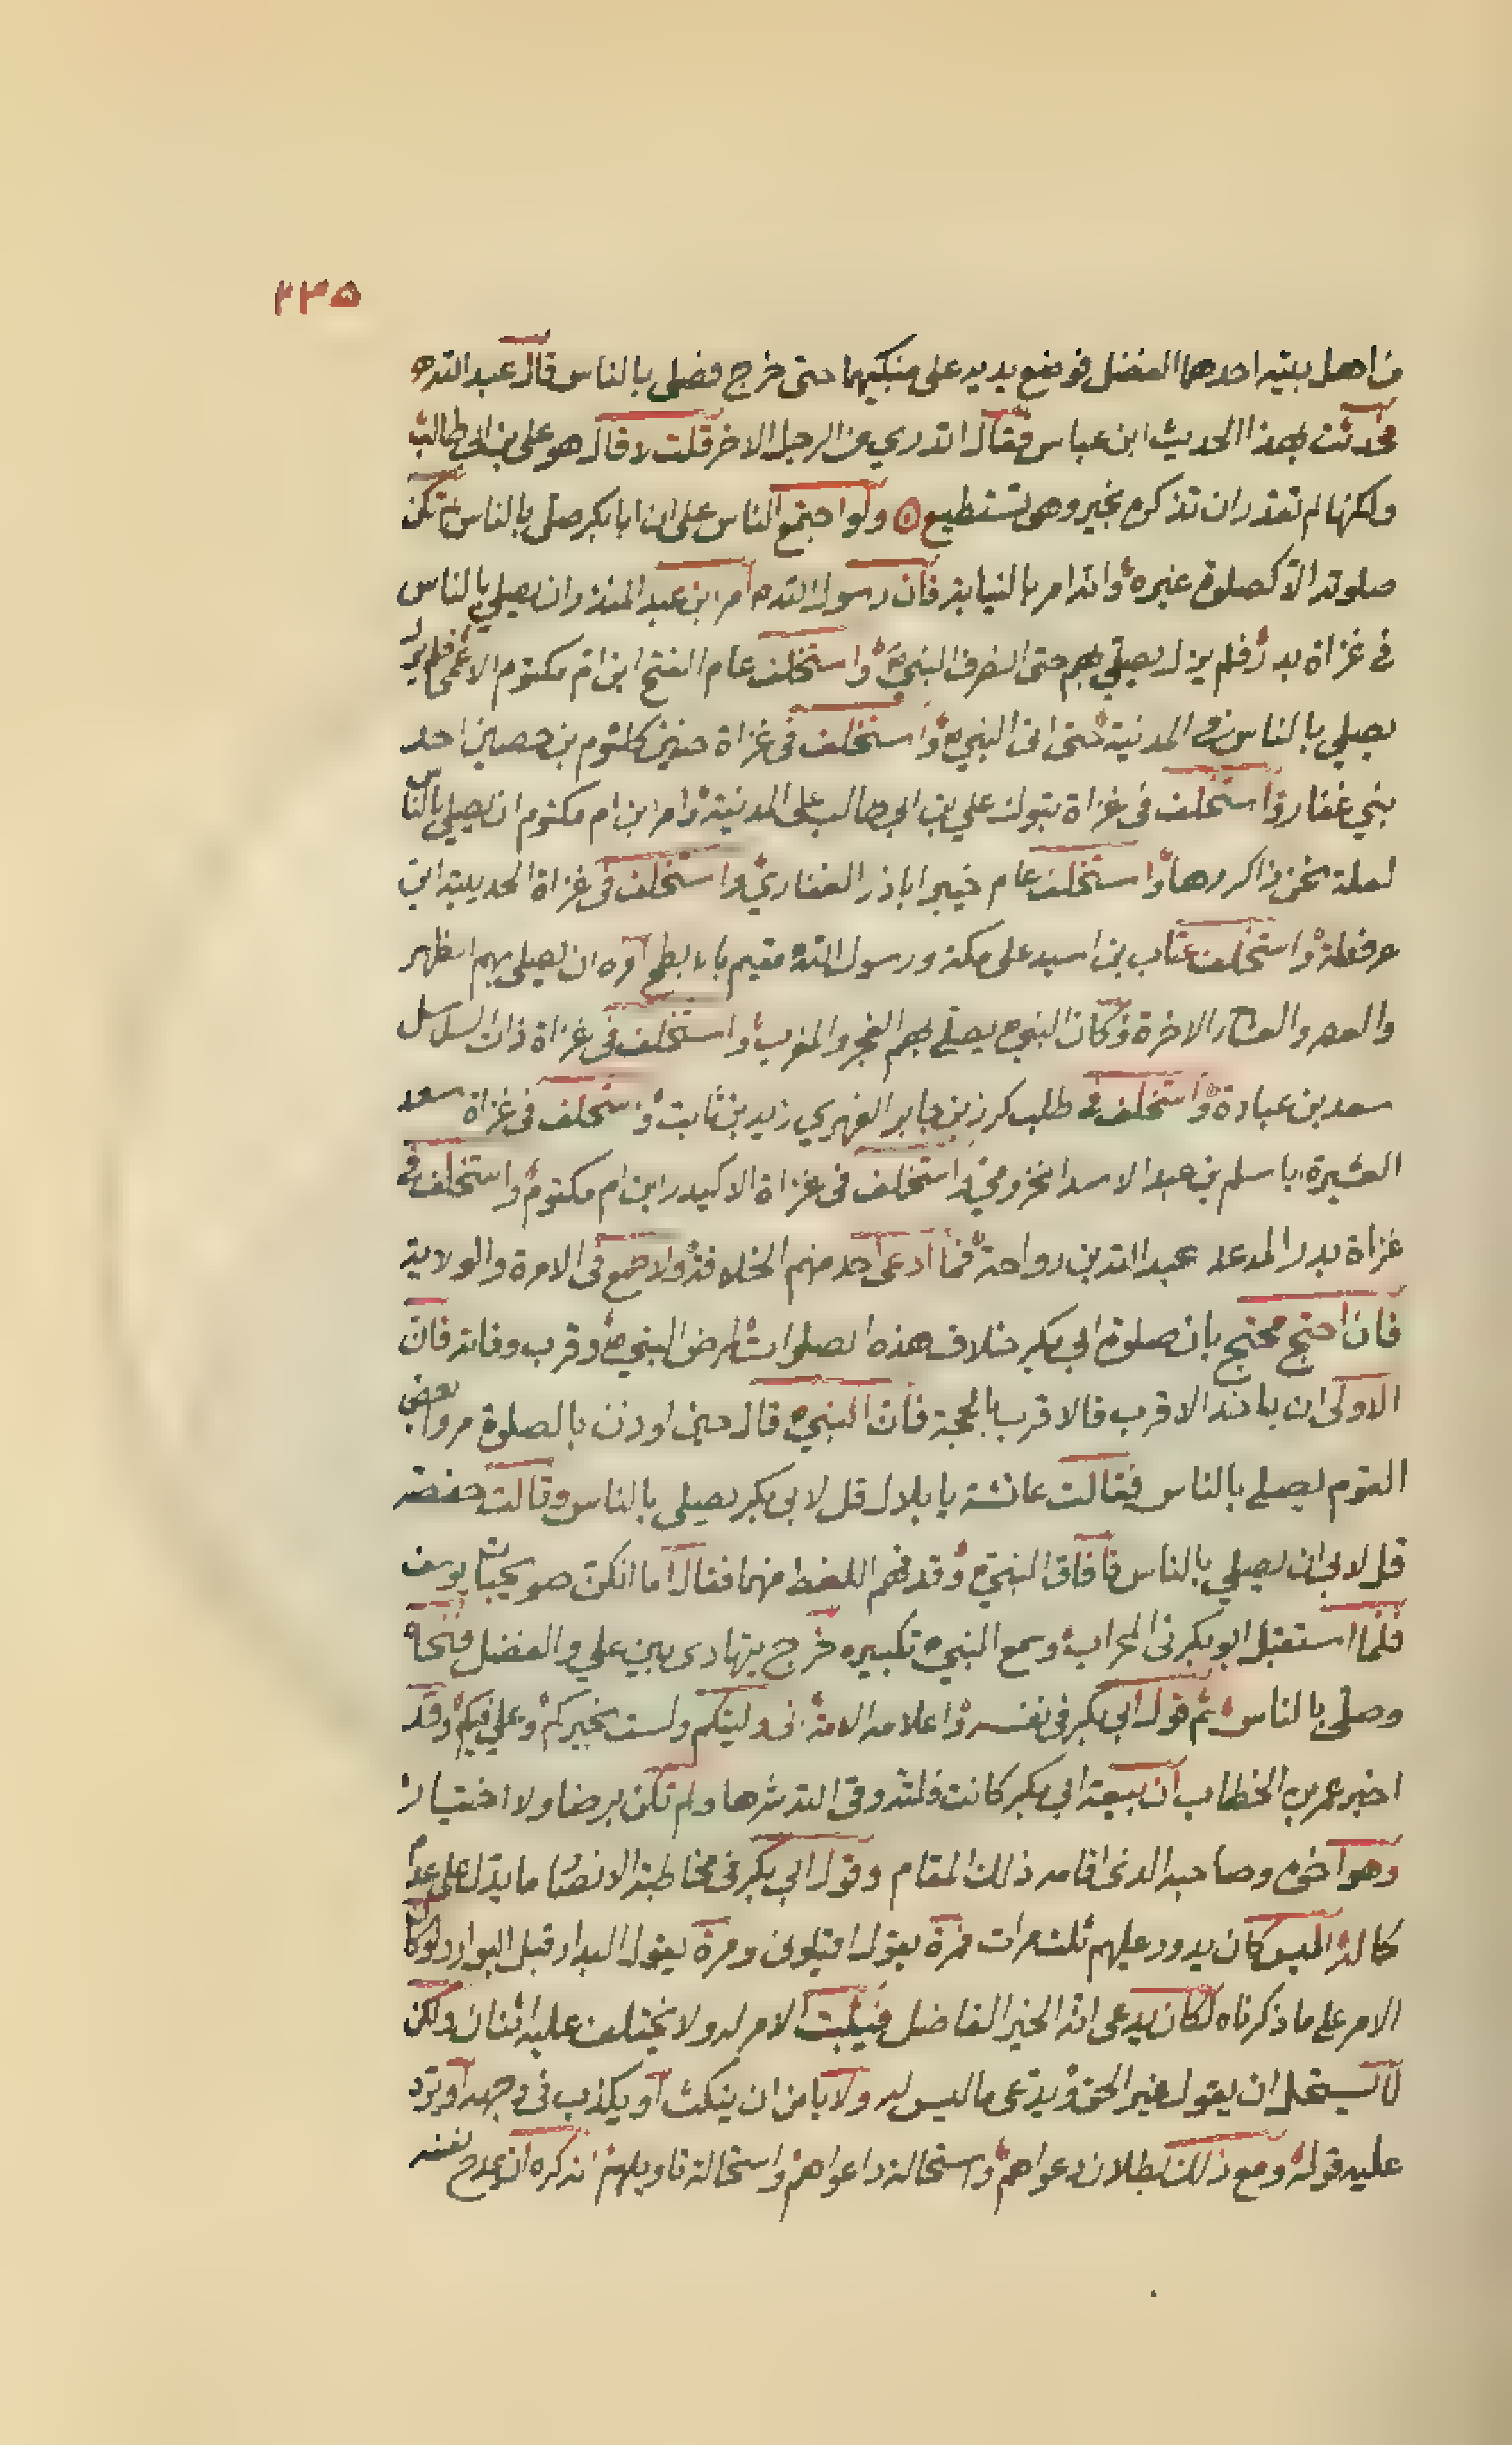 ٢٣٥
من اهل بيته احدهما الفضل فوضع يديه على منكبيهما حتى خرج فصلى بالناس قال عبد الله
فحدثت بهذا الحديث ابن عباس فقال اتدري من الرجل الاخر قلت لا قال هو علي بن ابي طالب
ولكنها لم تقدر ان تذكره بخير وهي تستطيع ولو اجتمع الناس على ان ابا بكر صلى بالناس لم تكن
صلوته الا كصلوة غيره وانه امر بالنيابة فان رسول الله امر ابن عبد المنذر ان يصلي بالناس
في غزاة بدر فلم يزل يصلي بهم حتى انصرف النبي واستخلف عام الفتح ابن ام مكتوم الاعمى فلم يزل
يصلي بالناس في المدنية حتى اتى النبي واستخلف في غزاة حنين كلثوم بن حصين احد
بني غفار واستخلف في غزاة تبوك علي بن ابي طالب على المدنية وامر ابن ام مكتوم ان يصلي بالناس
لعلة نحن ذاكروها واستخلف عام خيبر اباذر الغفاري واستخلف في غزاة الحديبية ابن
عرفطة واستخلف عتاب بن اسيد على مكة ورسول الله مقيم بالابطح امره ان يصلي بهم الظهر
والعصر والعشاء الاخرة وكان النبي يصلي بهم الفجر والمغرب واستخلف في غزاة ذات السلاسل
سعد بن عبادة واستخلف في طلب كرز بن جابر الفهري زيد بن ثابت واستخلف في غزاة سعد
العشيرة ابا سلم بن عبد الاسد المخزومي واستخلف في غزاة الاكيدر ابن ام مكتوم واستخلف في
غزاة بدر الموعد عبد الله بن رواحة فما ادعى احد منهم الخلافة ولا طمع في الامرة والولاية
فان احتج محتج بان صلوة ابي بكر خلاف هذه الصلوات لمرض النبي وقرب وفاته فان
الاولى ان ياخذ الاقرب فالاقرب بالحجة فان النبي قال حين اوذن بالصلوة مروا بعض
القوم يصلي بالناس فقالت عائشة يا بلال قل لابي بكر يصلي بالناس وقالت حفصة
قل لابي ان يصلي بالناس فافاق النبي وقد فهم اللغط منهما فقال اما انكن صويحبات يوسف
فلما استقبل ابو بكر في المحراب وسمع النبي تكبيره خرج يتهادى بين علي والفضل فنحاه
وصلى بالناس ثم قول ابي بكر في نفسه واعلامه الامة اني وليتكم ولست بخيركم وعلي فيكم وقد
اخبر عمر بن الخطاب ان بيعة ابي بكر كانت فلتة وقى الله شرها ولم تكن برضا ولا اختيار
وهو اخوه وصاحبه الذي اقامه ذلك المقام وقول ابي بكر في مخاطبة الانصار ما يدل على عدم
كماله اليس كان يدور عليهم ثلث مرات فمرة يقول اقيلوني ومرة يقول البدار قبل البوار ولو كان
الامر على ما ذكرناه لكان يدعي انه الخير الفاضل فيثبت الامر له ولا يختلف عليه اثنان ولكن
لا يستحل ان يقول غير الحق ويدعي ما ليس له ولا يامن ان ينكث او يكذب في وجهه او يرد
عليه قوله ومع ذلك بطلان دعواهم واستحالة داعواهم واستحالة تاويلهم نذكره ان مدح نفسه